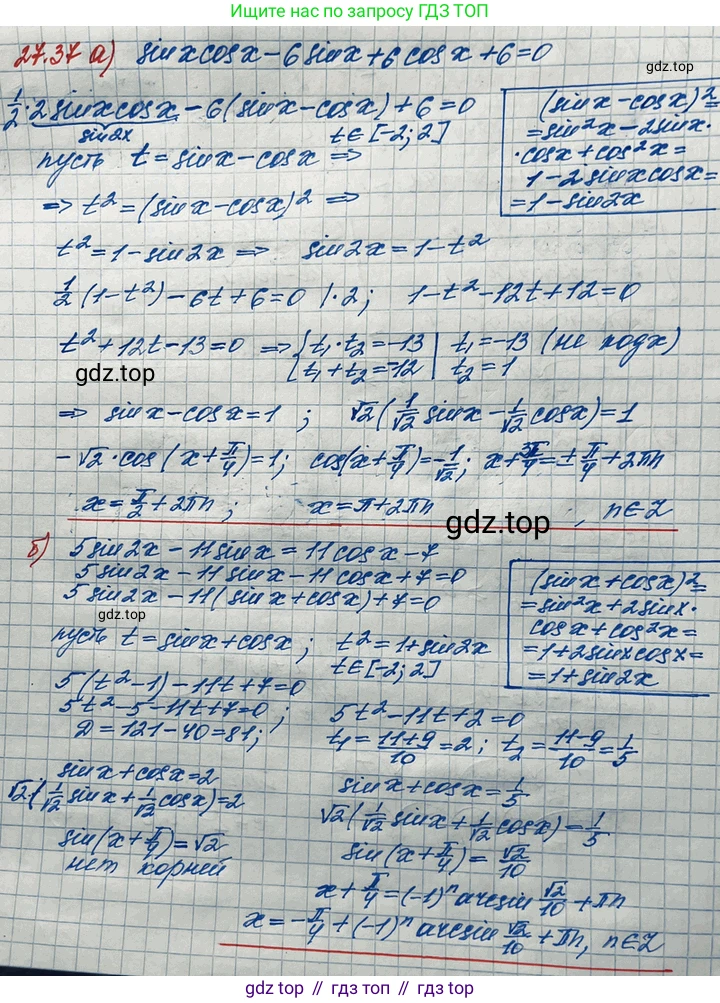 Именно такой ответ по запросу ГДЗ ТОП
27.37 а) sinxcosx-6sinx+6cosx+6=0
gdz.top
1/2·2sinxcosx-6(sinx-cosx)+6=0
sin2x t∈[-2;2]
пусть t=sinx-cosx ⇒
(sinx-cosx)²=
=sin²x-2sinx·
·cosx+cos²x=
1-2sinxcosx=
=1-sin2x
⇒ t²=(sinx-cosx)² ⇒
t²=1-sin2x ⇒ sin2x=1-t²
1/2(1-t²)-6t+6=0 |·2; 1-t²-12t+12=0
t²+12t-13=0 ⇒ {t₁·t₂=-13 | t₁=-13 (не подх)
t₁+t₂=-12 | t₂=1
gdz.top
⇒ sinx-cosx=1; √2(1/√2 sinx-1/√2 cosx)=1
-√2·cos(x+π/4)=1; cos(x+π/4)=-1/√2; x+π/4=±3π/4+2πn
x=π/2+2πn; x=π+2πn, n∈Z
gdz.top
б) 5sin2x-11sinx=11cosx-7
5sin2x-11sinx-11cosx+7=0
5sin2x-11(sinx+cosx)+7=0
gdz.top
(sinx+cosx)²=
=sin²x+2sinx·
cosx+cos²x=
=1+2sinxcosx=
=1+sin2x
пусть t=sinx+cosx; t²=1+sin2x
t∈[-2;2]
5(t²-1)-11t+7=0
5t²-5-11t+7=0; 5t²-11t+2=0
D=121-40=81; t₁=(11+9)/10=2; t₂=(11-9)/10=1/5
sinx+cosx=2
√2·(1/√2 sinx+1/√2 cosx)=2
sin(x+π/4)=√2
нет корней
sinx+cosx=1/5
√2(1/√2 sinx+1/√2 cosx)=1/5
sin(x+π/4)=√2/10
x+π/4=(-1)ⁿ arcsin √2/10+πn
x=-π/4+(-1)ⁿ arcsin √2/10+πn, n∈Z
gdz.top
gdz.top // гдз топ // gdz.top